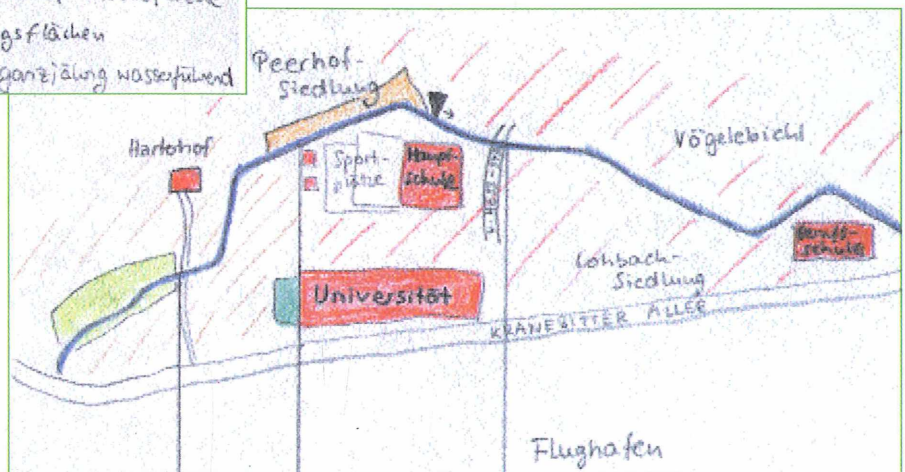 gsflächen
ganzjährig wasserführend
Peerhof-
Siedlung
Hartohof
Sport-
plätze
Haupt-
schule
Vögelebichl
Lohbach-
Siedlung
Berufs-
schule
Universität
KRANEBITTER ALLEE
Flughafen